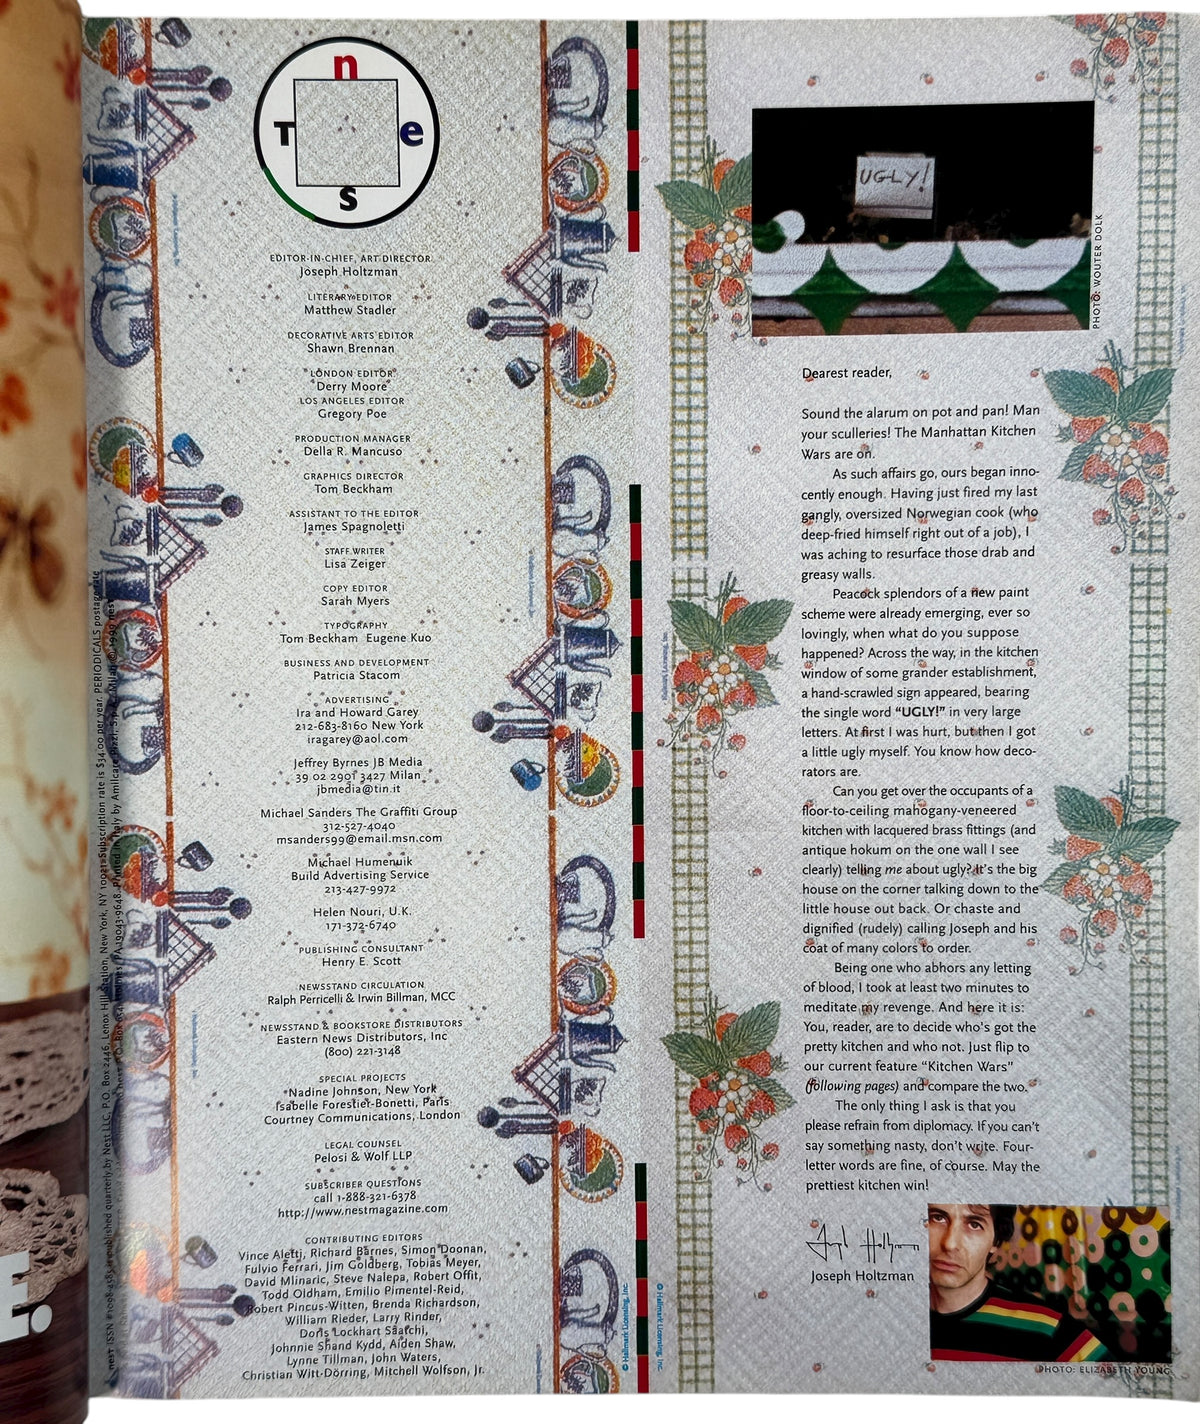 n
T e
s
EDITOR-IN-CHIEF, ART DIRECTOR
Joseph Holtzman
LITERARY EDITOR
Matthew Stadler
DECORATIVE ARTS EDITOR
Shawn Brennan
LONDON EDITOR
Derry Moore
LOS ANGELES EDITOR
Gregory Poe
PRODUCTION MANAGER
Della R. Mancuso
GRAPHICS DIRECTOR
Tom Beckham
ASSISTANT TO THE EDITOR
James Spagnoletti
STAFF WRITER
Lisa Zeiger
COPY EDITOR
Sarah Myers
TYPOGRAPHY
Tom Beckham Eugene Kuo
BUSINESS AND DEVELOPMENT
Patricia Stacom
ADVERTISING
Ira and Howard Garey
212-683-8160 New York
iragarey@aol.com
Jeffrey Byrnes JB Media
39 02 2901 3427 Milan
jbmedia@tin.it
Michael Sanders The Graffiti Group
312-527-4040
msanders99@email.msn.com
Michael Humenuik
Build Advertising Service
213-427-9972
Helen Nouri, U.K.
171-372-6740
PUBLISHING CONSULTANT
Henry E. Scott
NEWSSTAND CIRCULATION
Ralph Perricelli & Irwin Billman, MCC
NEWSSTAND & BOOKSTORE DISTRIBUTORS
Eastern News Distributors, Inc
(800) 221-3148
SPECIAL PROJECTS
Nadine Johnson, New York
Isabelle Forestier-Bonetti, Paris
Courtney Communications, London
LEGAL COUNSEL
Pelosi & Wolf LLP
SUBSCRIBER QUESTIONS
call 1-888-321-6378
http://www.nestmagazine.com
CONTRIBUTING EDITORS
Vince Aletti, Richard Barnes, Simon Doonan,
Fulvio Ferrari, Jim Goldberg, Tobias Meyer,
David Mlinaric, Steve Nalepa, Robert Offit,
Todd Oldham, Emilio Pimentel-Reid,
Robert Pincus-Witten, Brenda Richardson,
William Rieder, Larry Rinder,
Doris Lockhart Saatchi,
Johnnie Shand Kydd, Aiden Shaw,
Lynne Tillman, John Waters,
Christian Witt-Dörring, Mitchell Wolfson, Jr.
nest ISSN #1098-4585 is published quarterly by Nest LLC, P.O. Box 2446, Lenox Hill Station, New York, NY 10021. Subscription rate is $34.00 per year. PERIODICALS postage rate
Printed in Italy by Amilcare Pizzi, S.p.A., Milan © 1999 nest
© Hallmark Licensing, Inc.
© Hallmark Licensing, Inc.
UGLY!
PHOTO: WOUTER DOLK
Dearest reader,
Sound the alarum on pot and pan! Man
your sculleries! The Manhattan Kitchen
Wars are on.
As such affairs go, ours began inno-
cently enough. Having just fired my last
gangly, oversized Norwegian cook (who
deep-fried himself right out of a job), I
was aching to resurface those drab and
greasy walls.
Peacock splendors of a new paint
scheme were already emerging, ever so
lovingly, when what do you suppose
happened? Across the way, in the kitchen
window of some grander establishment,
a hand-scrawled sign appeared, bearing
the single word “UGLY!” in very large
letters. At first I was hurt, but then I got
a little ugly myself. You know how deco-
rators are.
Can you get over the occupants of a
floor-to-ceiling mahogany-veneered
kitchen with lacquered brass fittings (and
antique hokum on the one wall I see
clearly) telling me about ugly? It's the big
house on the corner talking down to the
little house out back. Or chaste and
dignified (rudely) calling Joseph and his
coat of many colors to order.
Being one who abhors any letting
of blood, I took at least two minutes to
meditate my revenge. And here it is:
You, reader, are to decide who's got the
pretty kitchen and who not. Just flip to
our current feature “Kitchen Wars”
(following pages) and compare the two.
The only thing I ask is that you
please refrain from diplomacy. If you can't
say something nasty, don't write. Four-
letter words are fine, of course. May the
prettiest kitchen win!
Joseph Holtzman
Joseph Holtzman
PHOTO: ELIZABETH YOUNG
E.